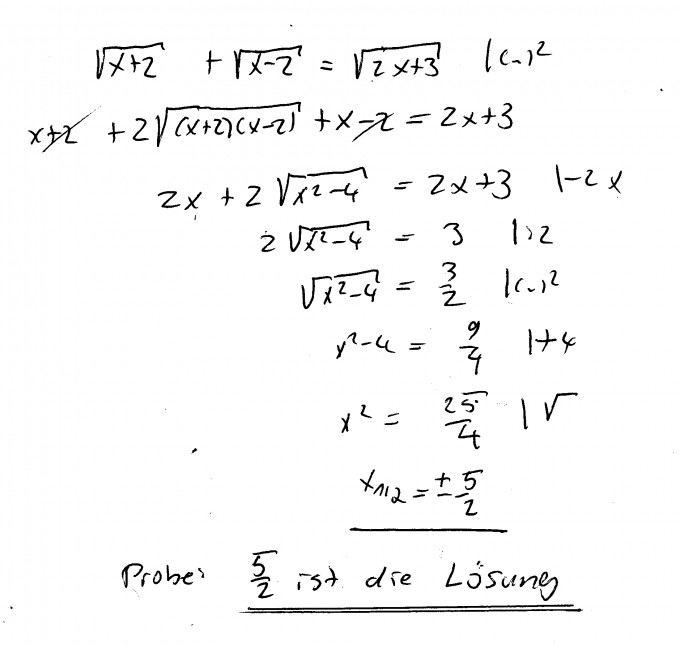 √(x+2) + √(x-2) = √(2x+3) |(..)²
x+2 + 2√((x+2)(x-2)) + x-2 = 2x+3
2x + 2√(x²-4) = 2x+3 |-2x
2√(x²-4) = 3 |:2
√(x²-4) = 3/2 |(..)²
x²-4 = 9/4 |+4
x² = 25/4 |√
x₁/₂ = ± 5/2
Probe: 5/2 ist die Lösung